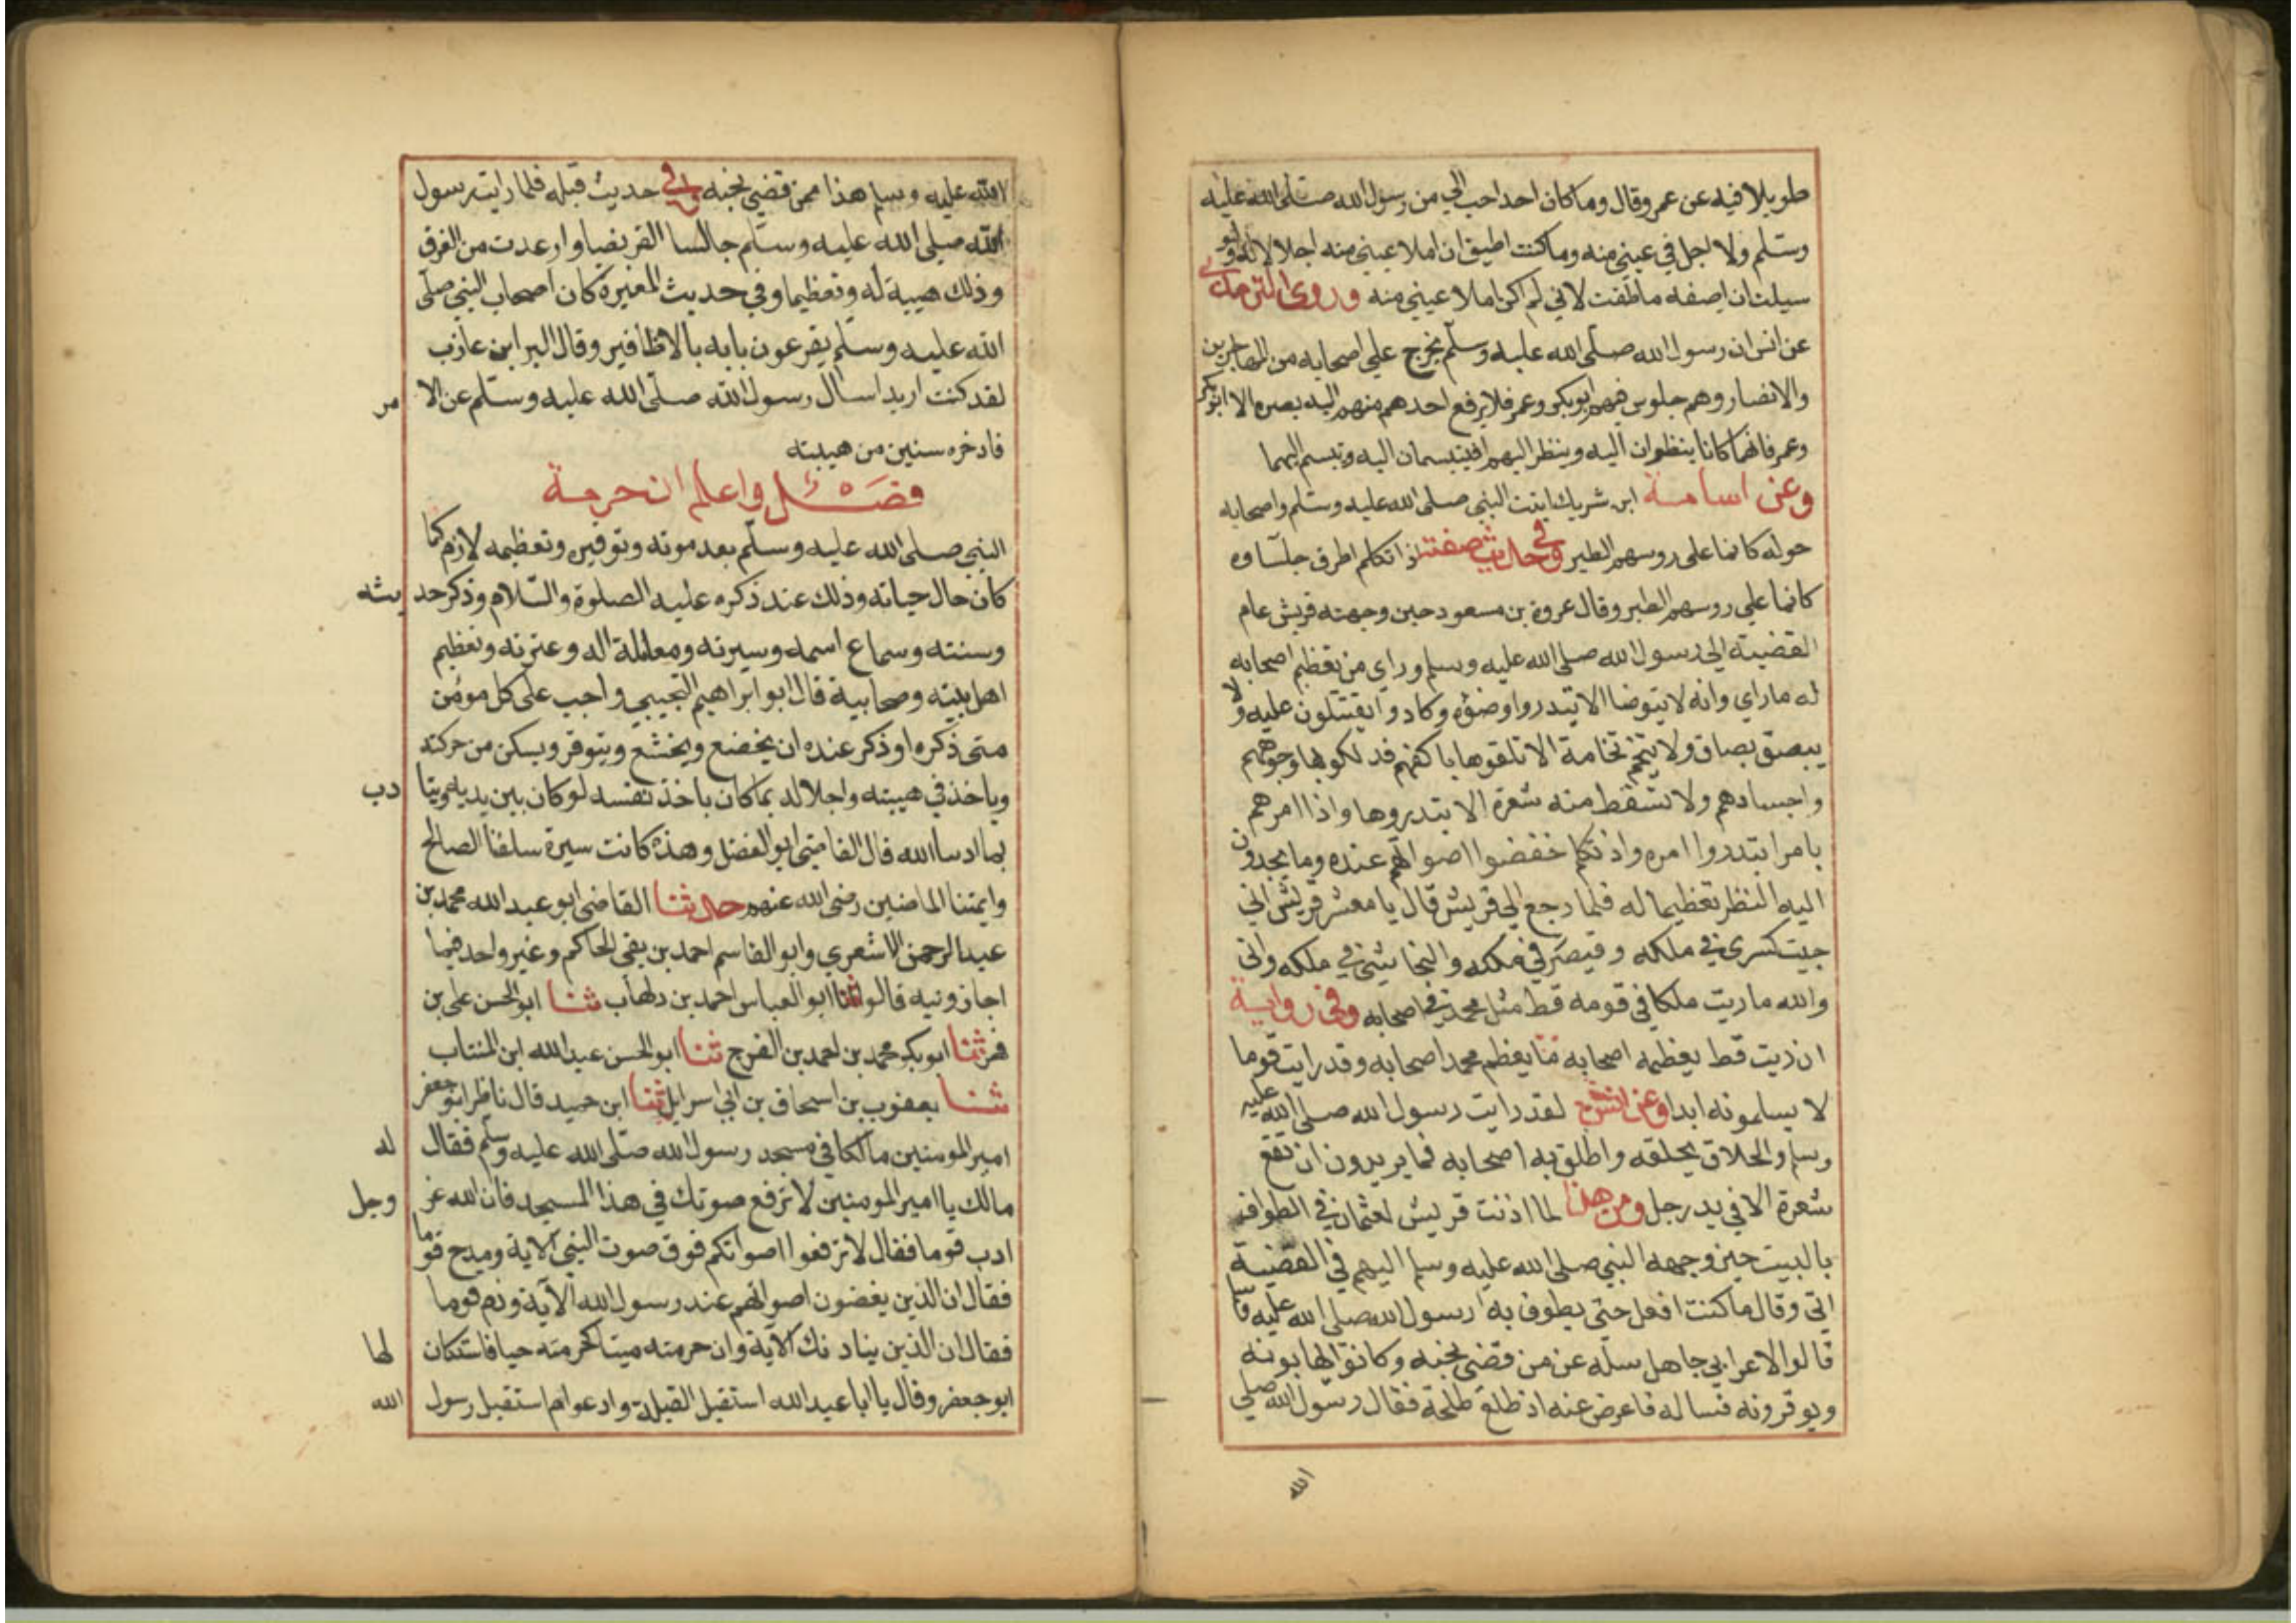 طويلا فيه عن عمرو قال وما كان احد احب الي من رسول الله صلى الله عليه
وسلم ولا اجل في عيني منه وما كنت اطيق ان املا عيني منه اجلالا له ولو
سيلت ان اصفه ما اطقت لاني لم اكن املا عيني منه وروى الترمذي
عن انس ان رسول الله صلى الله عليه وسلم يخرج علي اصحابه من المهاجرين
والانصار وهم جلوس فيهم ابو بكر وعمر فلا يرفع احدهم منهم اليه بصره الا ابو بكر
وعمر فانهما كانا ينظران اليه وينظر اليهم افيتبسمان اليه وتبسم اليهما
وعن اسامة ابن شريك اتيت النبي صلى الله عليه وسلم واصحابه
حوله كانما على روسهم الطير وفي حديث صفته اذا تكلم اطرق جلساوه
كانما علي روسهم الطير وقال عروة بن مسعود حين وجهته قريش عام
القضية الي رسول الله صلى الله عليه وسلم وراي من تعظيم اصحابه
له ما راي وانه لا يتوضا الا ابتدروا وضوه وكادوا يقتتلون عليه ولا
يبصق بصاق ولا يتنخم نخامة الا تلقوها باكفهم فدلكو بها وجوههم
واجسادهم ولا تسقط منه شعرة الا ابتدروها واذا امرهم
بامر ابتدروا امره واذ تكلم خفضوا اصواتهم عنده وما يحدون
اليه النظر تعظيما له فلما رجع الي قريش قال يا معشر قريش اني
جيت كسرى في ملكه وقيصر في ملكه والنجاشي في ملكه واني
والله ما ريت ملكا في قومه قط مثل محمد في اصحابه وفي رواية
ان ريت قط يعظمه اصحابه ما يعظم محمدا اصحابه وقد رايت قوما
لا يسلمونه ابدا وعن انس لقد رايت رسول الله صلى الله عليه
وسلم والحلاق يحلقه واطلق به اصحابه فما يريدون ان تقع
شعرة الا في يد رجل ومن هذا لما اذنت قريش لعثمان في الطواف
بالبيت حين وجهه النبي صلى الله عليه وسلم اليهم في القضية
ابي وقال ما كنت افعل حتى يطوف به رسول الله صلى الله عليه وسلم
قالوا لاعرابي جاهل سله عن من قضى نحبه وكانوا يهابونه
ويوقرونه فساله فاعرض عنه اذ طلع طلحة فقال رسول الله صلي
الله
الله عليه وسلم هذا ممن قضي نحبه وفي حديث قيله فلما رايت رسول
الله صلى الله عليه وسلم جالسا القرفصا وارعدت من الفرق
وذلك هيبة له وتعظيما وفي حديث المغيرة كان اصحاب النبي صلى
الله عليه وسلم يقرعون بابه بالاظافير وقال البرا ابن عازب
لقد كنت اريد اسال رسول الله صلى الله عليه وسلم عن الامر
فادخره سنين من هيبته
فصل واعلم ان حرمة
النبي صلى الله عليه وسلم بعد موته وتوقيره وتعظيمه لازم كما
كان حال حياته وذلك عند ذكره عليه الصلوة والسلام وذكر حديثه
وسنته وسماع اسمه وسيرته ومعاملة اله وعترته وتعظيم
اهل بيته وصحابية قال ابو ابراهيم التجيبي واجب على كل مومن
متى ذكره او ذكر عنده ان يخضع ويخشع ويتوقر ويسكن من حركته
وياخذ في هيبته واجلاله بما كان ياخذ نفسه لو كان بين يديه ويتادب
بما ادبنا الله قال القاضي ابو الفضل وهذه كانت سيرة سلفنا الصالح
وايمتنا الماضين رضى الله عنهم حدثنا القاضي ابو عبد الله محمد بن
عبد الرحمن الاشعري وابو القاسم احمد بن بقى الحاكم وغير واحد فيما
اجازونيه قالوا ثنا ابو العباس احمد بن دلهاب ثنا ابو الحسن على بن
فهر ثنا ابو بكر محمد بن احمد بن الفرج ثنا ابو الحسن عبد الله ابن المنتاب
ثنا يعقوب بن اسحاق بن ابي اسرايل ثنا ابن حميد قال ناظر ابو جعفر
امير المومنين مالكا في مسجد رسول الله صلى الله عليه وسلم فقال له
مالك يا امير المومنين لا ترفع صوتك في هذا المسجد فان الله عز وجل
ادب قوما فقال لا ترفعوا اصواتكم فوق صوت النبي الاية ومدح قوما
فقال ان الذين يغضون اصواتهم عند رسول الله الآية وذم قوما
فقال ان الذين ينادونك الآية وان حرمته ميتا كحرمته حيا فاستكان لها
ابو جعفر وقال يا ابا عبد الله استقبل القبلة وادعو ام استقبل رسول الله